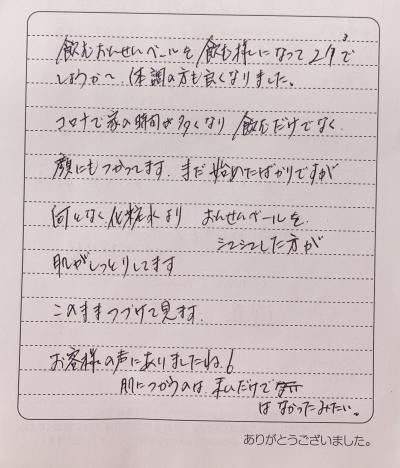 飲むおんせんベールを飲む様になって2ヶ月で
しょうか〜 体調の方も良くなりました。
コロナで家の時間が多くなり 飲むだけでなく
顔にもつかってます。まだ始めたばかりですが
何となく化粧水より おんせんベールを
シュシュした方が
肌がしっとりしてます
このままつづけて見ます。
お客様の声にありましたね!
肌につかうのは 私だけで
はなかったみたい。
ありがとうございました。